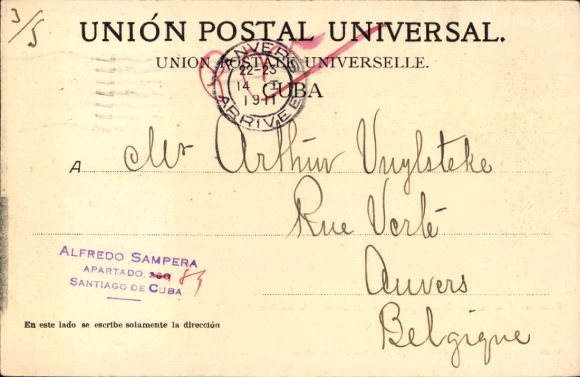 3/5
UNIÓN POSTAL UNIVERSAL.
UNION POSTALE UNIVERSELLE.
CUBA
ANVERS
22-23
14 II
1911
ARRIVEE
A Mr Arthur Vuylsteke
Rue Verte
Anvers
Belgique
ALFREDO SAMPERA
APARTADO, 260 84
SANTIAGO DE CUBA
En este lado se escribe solamente la dirección